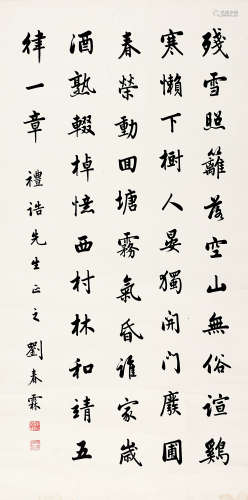 殘雪照籬落空山無俗諠鷄
寒懶下樹人晏獨開門廢圃
春榮動囬塘霧氣昏誰家歲
酒熟輟棹憶西村林和靖五
律一章 禮誥先生正之 劉春霖